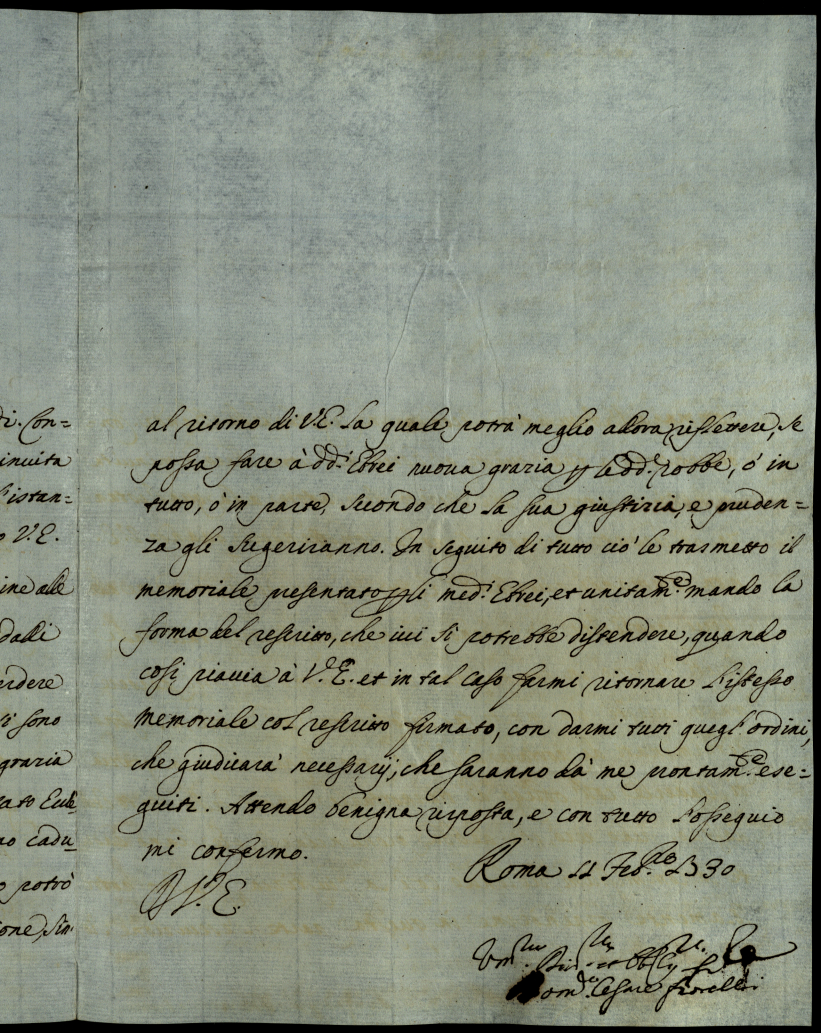 di. Con=
invita
l'istan=
o V.E.
ine alle
dalli
erdere
si sono
grazia
cato Eccl:
no cadu
o potrò
ione, sin
al ritorno di V.E. la quale potrà meglio allora riflettere, se
possa fare à dd.i Ebrei nuova grazia p le dd.e robbe, ò in
tutto, ò in parte, secondo che la sua giustizia, e pruden=
za gli sugeriranno. In seguito di tutto ciò le trasmetto il
memoriale presentato p gli med.i Ebrei, et unitam.e mando la
forma del rescritto, che ivi si potrebbe distendere, quando
così piaccia à V.E. et in tal caso farmi ritornare l'istesso
Memoriale col rescritto firmato, con darmi tutti quegl'ordini,
che giudicarà necessarij, che saranno dà me prontam.e ese=
guiti. Attendo benigna risposta, e con tutto l'ossequio
mi confermo.
Roma 11 Feb.ro 1730
V.E.
Um.mo
Dom.co Cesare Fiorelli